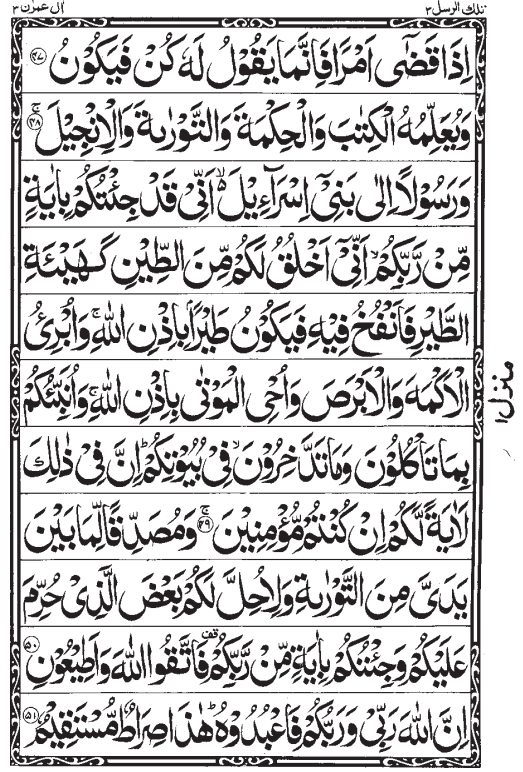 تلك الرسل ٣ ال عمرٰن ٣
اِذَا قَضٰٓى اَمْرًا فَاِنَّمَا يَقُوْلُ لَهٗ كُنْ فَيَكُوْنُ ﴿۴۷﴾
وَيُعَلِّمُهُ الْكِتٰبَ وَالْحِكْمَةَ وَالتَّوْرٰىةَ وَالْاِنْجِيْلَ ۚ﴿۴۸﴾
وَرَسُوْلًا اِلٰى بَنِيْٓ اِسْرَآءِيْلَ ۙ۬ اَنِّيْ قَدْ جِئْتُكُمْ بِاٰيَةٍ
مِّنْ رَّبِّكُمْ ۙ اَنِّيْٓ اَخْلُقُ لَكُمْ مِّنَ الطِّيْنِ كَهَيْـَٔةِ
الطَّيْرِ فَاَنْفُخُ فِيْهِ فَيَكُوْنُ طَيْرًۢا بِاِذْنِ اللّٰهِ ۚ وَاُبْرِئُ
الْاَكْمَهَ وَالْاَبْرَصَ وَاُحْيِ الْمَوْتٰى بِاِذْنِ اللّٰهِ ۚ وَاُنَبِّئُكُمْ
بِمَا تَاْكُلُوْنَ وَمَا تَدَّخِرُوْنَ ۙ فِيْ بُيُوْتِكُمْ ؕ اِنَّ فِيْ ذٰلِكَ
لَاٰيَةً لَّكُمْ اِنْ كُنْتُمْ مُّؤْمِنِيْنَ ۚ﴿۴۹﴾ وَمُصَدِّقًا لِّمَا بَيْنَ
يَدَيَّ مِنَ التَّوْرٰىةِ وَلِاُحِلَّ لَكُمْ بَعْضَ الَّذِيْ حُرِّمَ
عَلَيْكُمْ وَجِئْتُكُمْ بِاٰيَةٍ مِّنْ رَّبِّكُمْ قف فَاتَّقُوا اللّٰهَ وَاَطِيْعُوْنِ ﴿۵۰﴾
اِنَّ اللّٰهَ رَبِّيْ وَرَبُّكُمْ فَاعْبُدُوْهُ ؕ هٰذَا صِرَاطٌ مُّسْتَقِيْمٌ ﴿۵۱﴾
منزل ۱